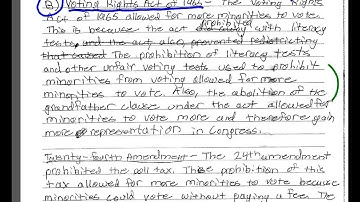 B) Voting Rights Act of 1965 - The Voting Rights
Act of 1965 allowed for more minorities to vote.
This is because the act prohibited did away with literacy
tests, and the act also prevented redistricting
that caused The prohibition of literacy tests
and other unfair voting tests used to prohibit
minorities from voting allowed for more
minorities to vote. Also, the abolition of the
grandfather clause under the act allowed for
minorities to vote more and therefore gain
more representation in Congress.
Twenty-Fourth Amendment - The 24th amendment
prohibited the poll tax. The prohibition of this
tax allowed for more minorities to vote because
minorities could vote without paying a fee. The